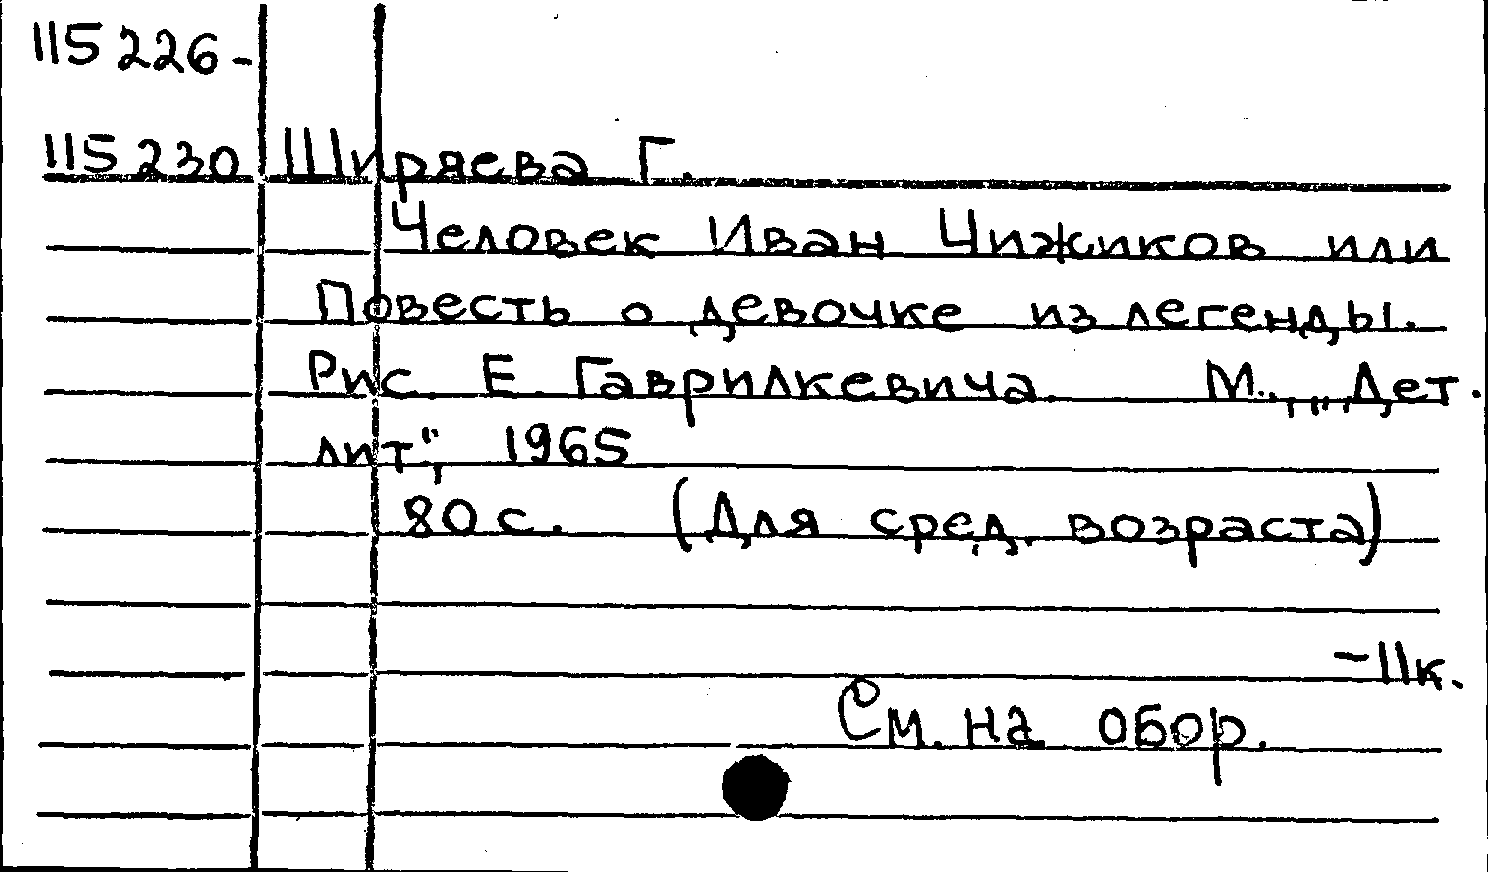 115226-
115230 Ширяева Г.
Человек Иван Чижиков или
Повесть о девочке из легенды.
Рис. Е. Гаврилкевича. М., „Дет.
лит", 1965
80 с. (Для сред. возраста)
-11к.
См. на обор.